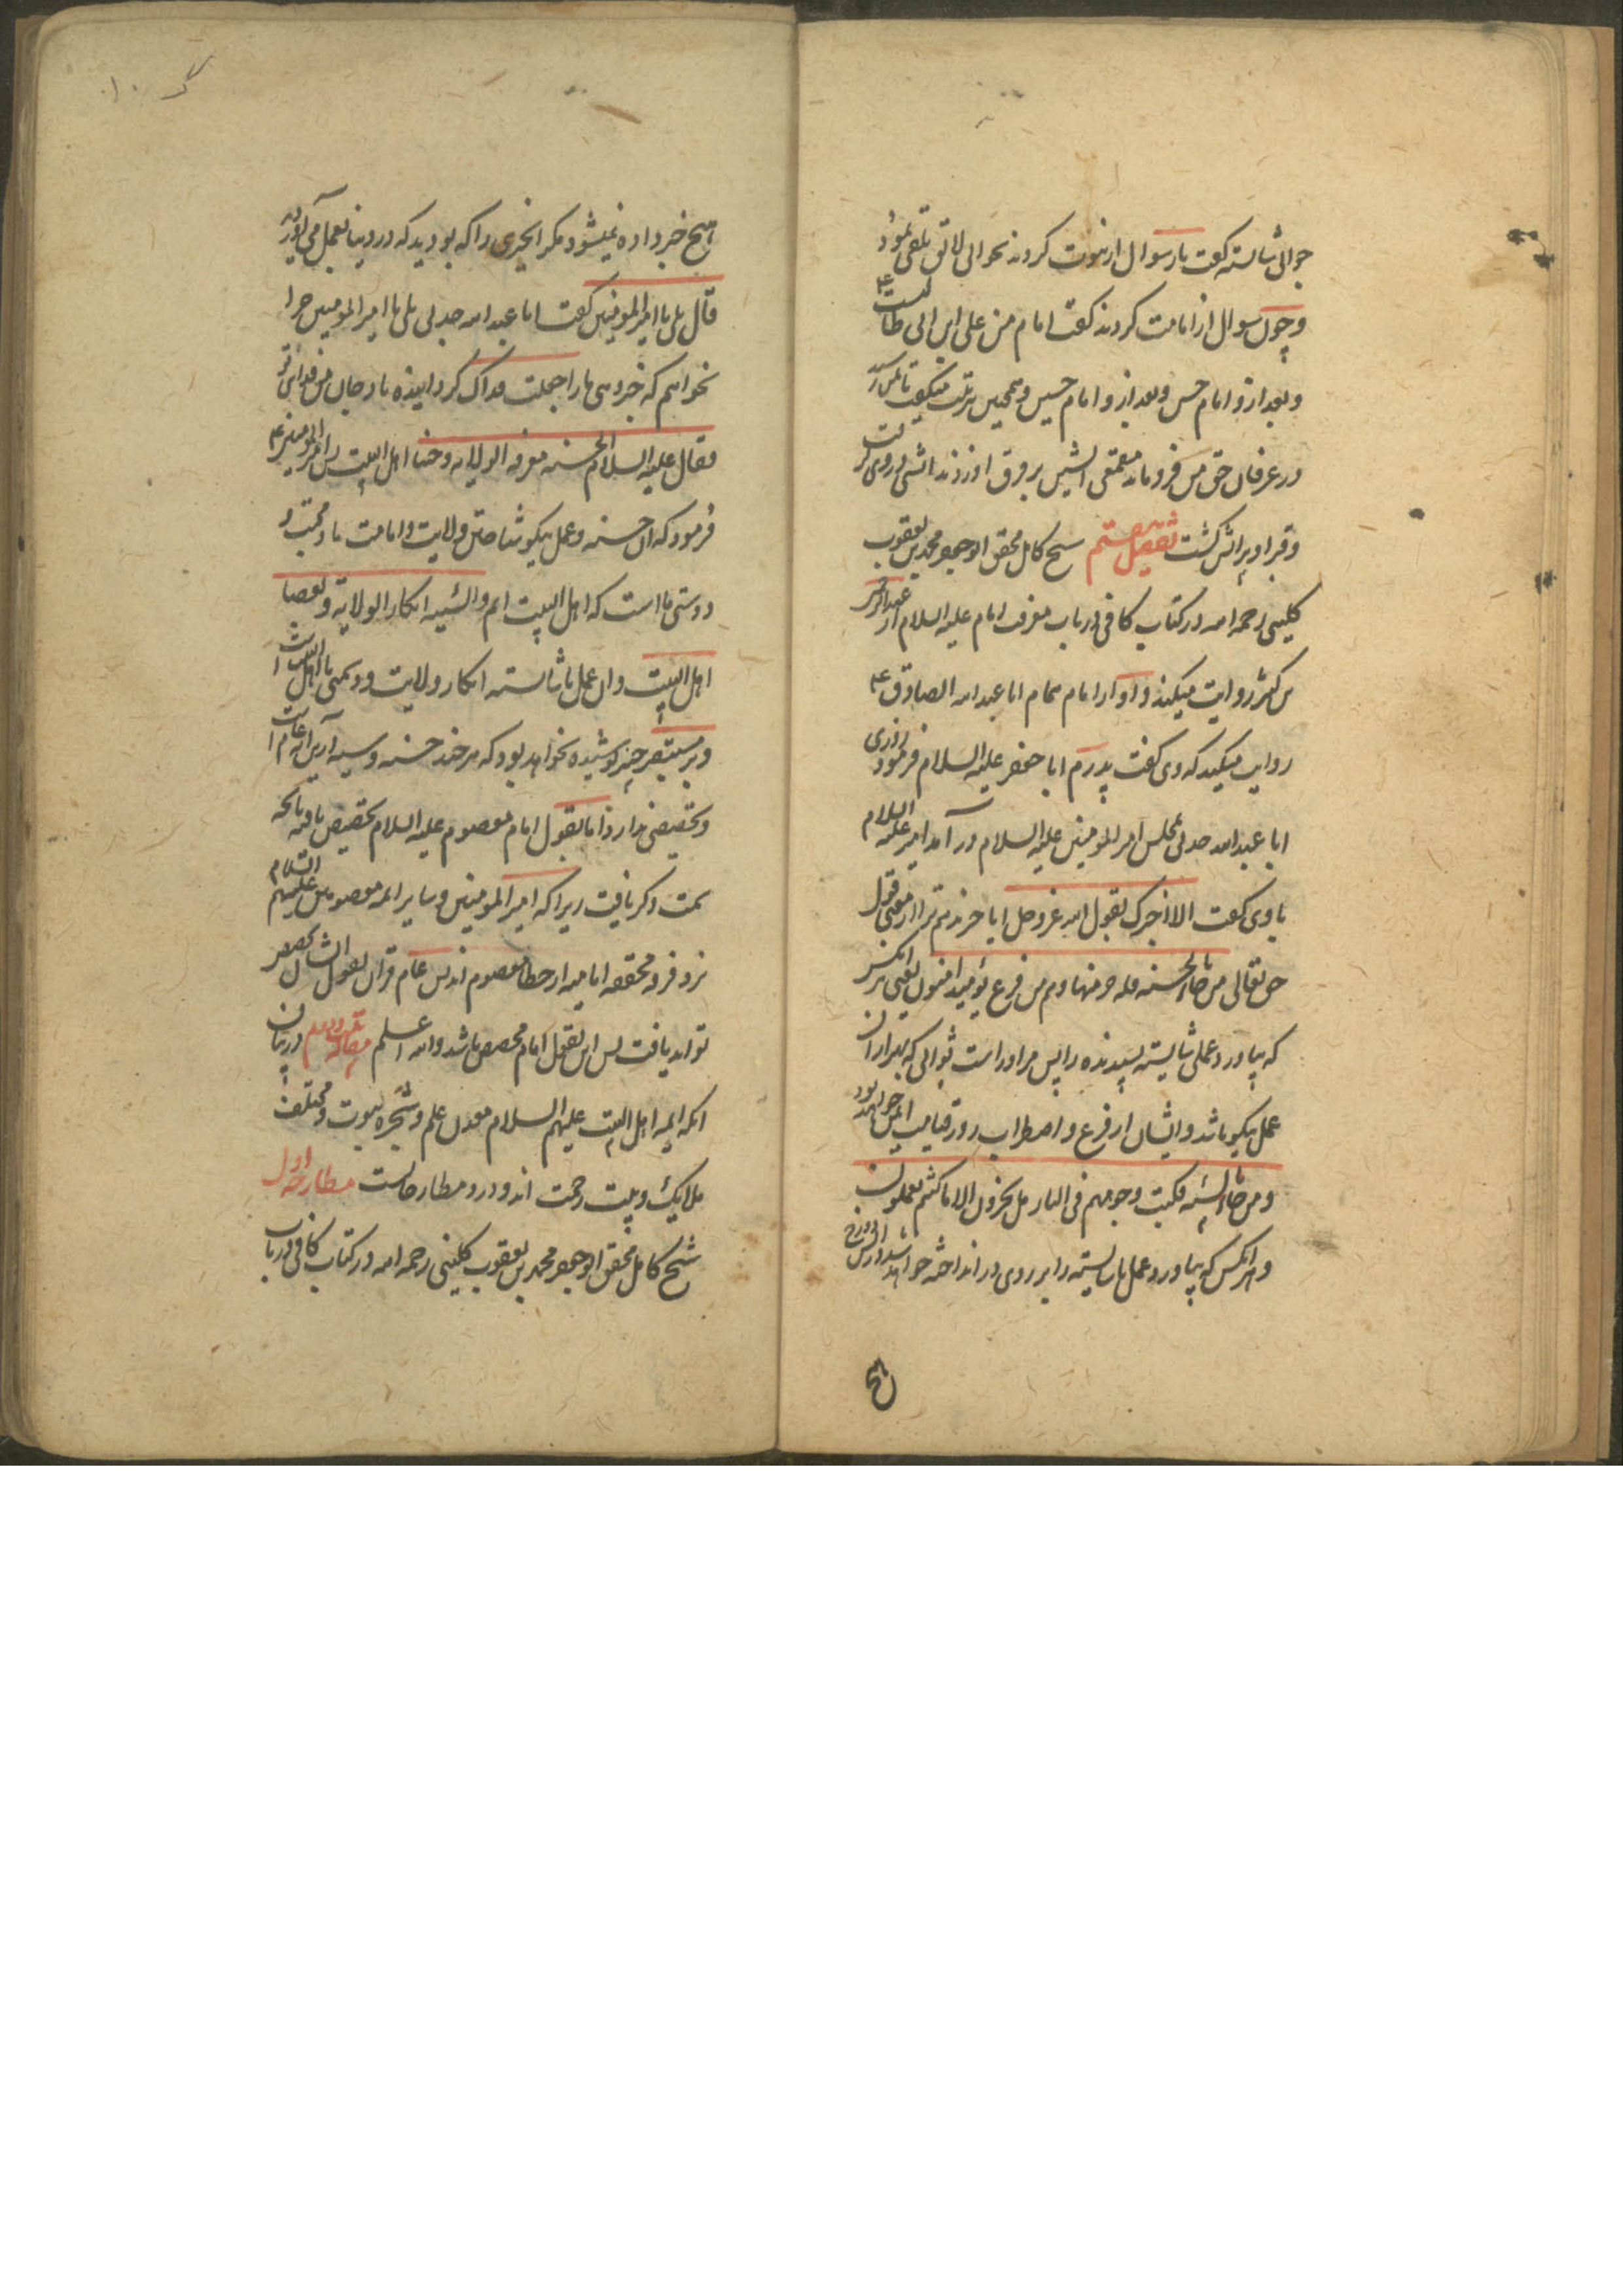 جوابی شایسته گفت باز سوال از نبوت کردند بجوابی لایق تلقی نمود
و چون سوال از امامت کردند گفت امام من علی ابن ابی طالبست ع
و بعد ازو امام حسن و بعد ازو امام حسین و همچنین بترتیب میگفت تا بمن رسید
در عرفان حق من فرو ماند مقمعه آتشین بر فرق او زدند آتشی بر وی
و قبر او پر آتش گشت تفصیل هشتم شیخ کامل محقق ابو جعفر محمد بن یعقوب
کلینی رحمه الله در کتاب کافی در باب معرفت امام علیه السلام از عبد الرحمن
بن کثیر روایت میکند و او از امام همام ابا عبد الله الصادق ع
روایت میکند که وی گفت پدرم ابا جعفر علیه السلام فرمود روزی
ابا عبد الله جدلی بمجلس امیر المومنین علیه السلام در آمد امیر علیه السلام
با وی گفت الا اخبرک بقول الله عز و جل ایا خبر ندهم ترا از معنی قول
حق تعالی من جاء بالحسنه فله خیر منها و هم من فزع یومئذ امنون یعنی هر انکس
که بیاورد عملی شایسته پسندیده را پس مر او راست ثوابی که بهتر از ان
عمل نیکو باشد و ایشان از فزع و اضطراب روز قیامت ایمن خواهد بود
و من جاء بالسیئه فکبت وجوههم فی النار هل تجزون الا ما کنتم تعملون
و هر انکس که بیاورد عمل ناشایسته را بر روی در انداخته خواهد شد در آتش دوزخ
هیچ
هیچ خبر داده نمیشود مگر انچیزی را که بودید که در دنیا بعمل می آوردید
قال بلی یا امیر المومنین گفت ابا عبد الله جدلی بلی یا امیر المومنین چرا
نخواهم که خبر دهی مارا جعلت فداک گرداینده باد جان من فدای تو
فقال علیه السلام الحسنه معرفه الولایه و حبنا اهل البیت پس امیر المومنین ع
فرمود که ان حسنه و عمل نیکو شناختن ولایت و امامت ما و محبت و
دوستی ما است که اهل البیت ایم و السیئه انکار الولایه و بغضنا
اهل البیت و ان عمل ناشایسته انکار ولایت و دشمنی با اهل البیت است
و بر مستبصر خبیر پوشیده نخواهد بود که هر چند حسنه و سیئه در این آیه عام است
و تخصیصی ندارد اما بقول امام معصوم علیه السلام تخصیص یافته بانچه
سمت ذکر یافت زیرا که امیر المومنین و سایر ائمه معصومین علیهم السلام
نزد فرقه محققه امامیه از خطا معصوم اند پس عام قران بقول ایشان تخصیص
تواند یافت پس این بقول امام مخصص باشد والله اعلم مقاله دویم در بیان
انکه ایمه اهل البیت علیهم السلام معدن علم و شجره نبوت و مختلف
ملایک و بیت رحمت اند و درو مطارحاتست مطارحه اول
شیخ کامل محقق ابو جعفر محمد بن یعقوب کلینی رحمه الله در کتاب کافی در باب